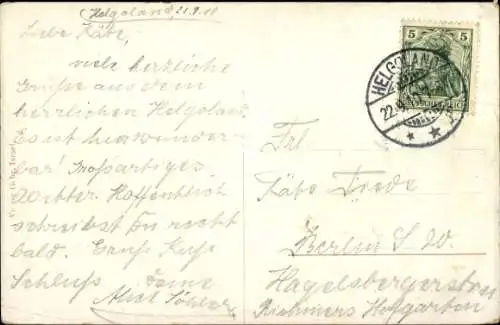 Helgoland, 22.9.11
Liebe Käte,
viele herzliche
Grüße aus dem
herrlichen Helgoland.
Es ist hier wunder-
bar! Großartiges
Wetter. Hoffentlich
schreibst Du recht
bald. Gruß Kuß
Schluß Deine
5
HELGOLAND
22.9.11
Frl.
Käte Tiede
Berlin S.W.
Hagelsbergerstras
Riehmers Hofgarten